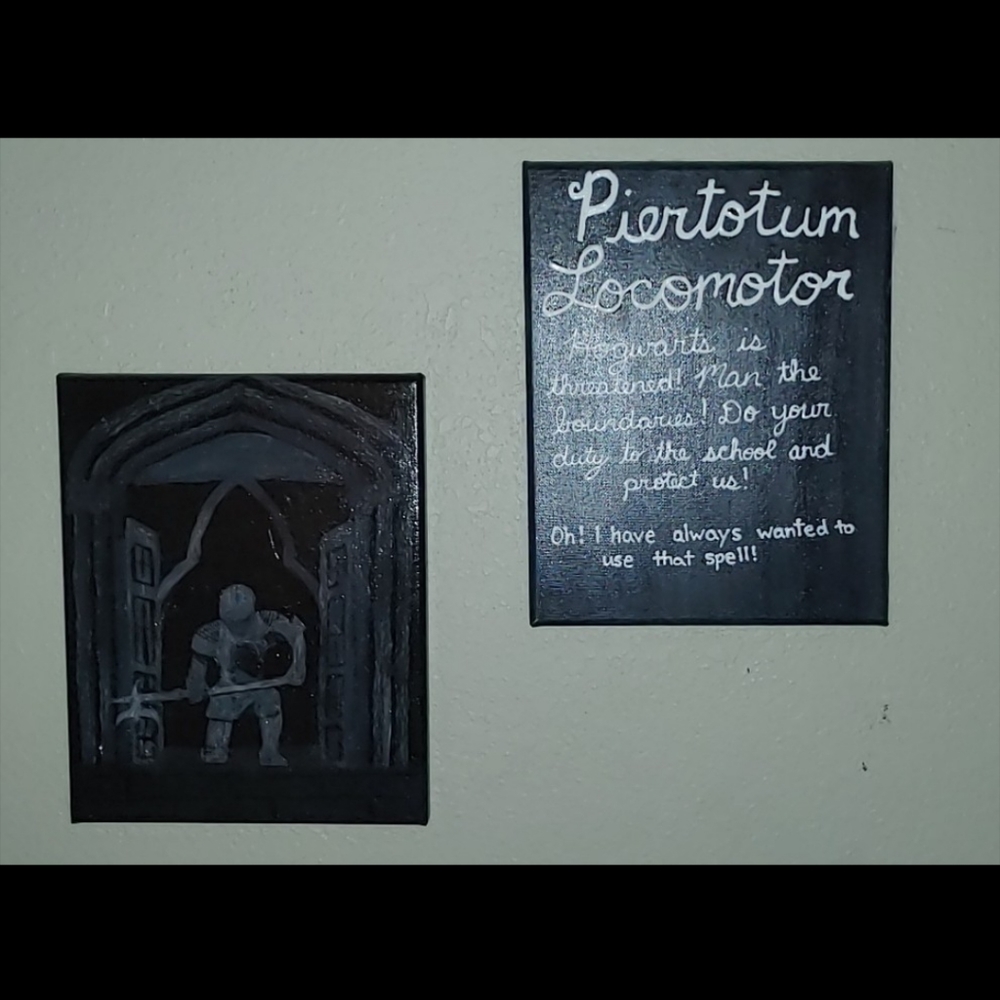 Piertotum
Locomotor
Hogwarts is
threatened! Man the
boundaries! Do your
duty to the school and
protect us!
Oh! I have always wanted to
use that spell!